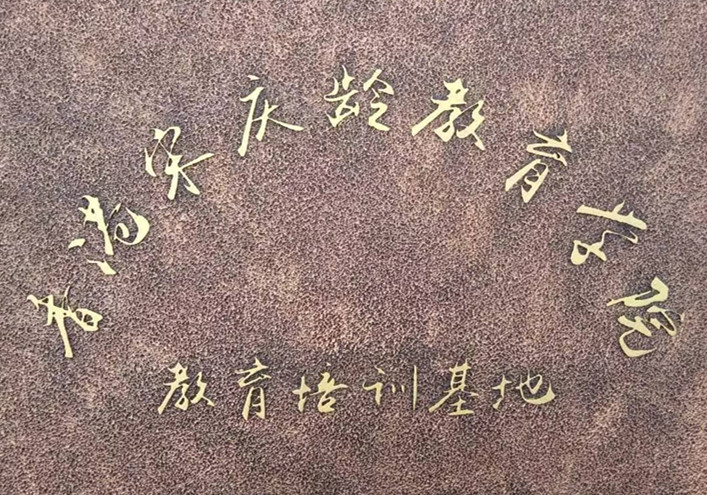 香港宋庆龄教育书院
教育培训基地